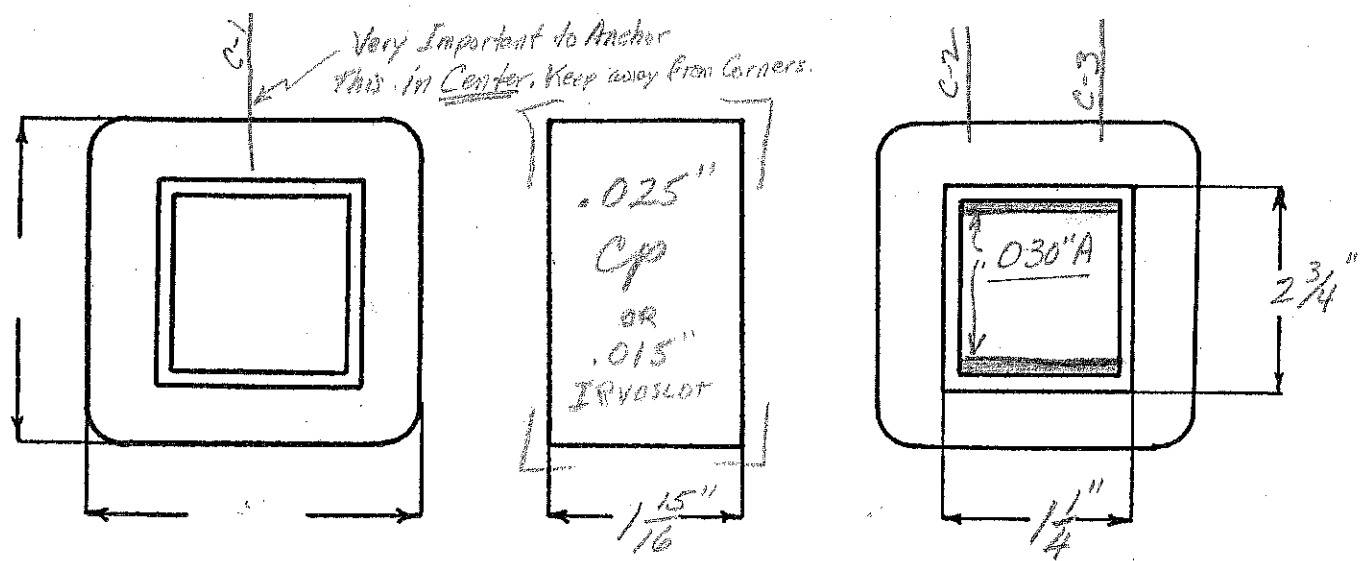 C-1
Very Important to Anchor
This in Center. Keep away from Corners.
C-2
C-3
.025"
Cp
OR
.015"
IRVOSLOT
.030"A
2 3/4"
1 15/16"
1 1/4"